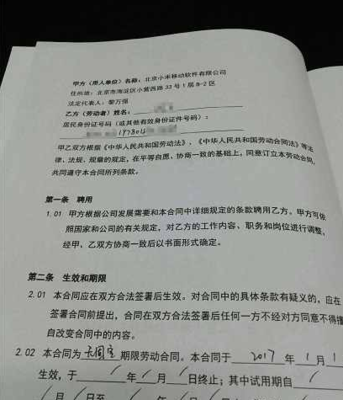 甲方（用人单位）名称：北京小米移动软件有限公司
住所地：北京市海淀区小营西路33号1层B-2区
法定代表人：黎万强
乙方（劳动者）姓名：
居民身份证号码（或其他有效身份证件号码）：
甲乙双方根据《中华人民共和国劳动法》、《中华人民共和国劳动合同法》等法
律、法规、规章的规定，在平等自愿、协商一致的基础上，同意订立本劳动合同，
共同遵守本合同所列条款。
第一条 聘用
1.01 甲方根据公司发展需要和本合同中详细规定的条款聘用乙方。甲方可依
照国家和公司的有关规定，对乙方的工作内容、职务和岗位进行调整，
经甲、乙双方协商一致后以书面形式确定。
第二条 生效和期限
2.01 本合同应在双方合法签署后生效。对合同中的具体条款有疑义的，应在
签署合同前提出，合同在双方合法签署后任何一方不经对方同意不得擅
自改变合同中的内容。
2.02 本合同为无固定期限劳动合同。本合同于 2017 年 1 月 1
生效，于 / 年 / 月 / 日终止；其中试用期自 /
月 / 日至 / 年 / 月